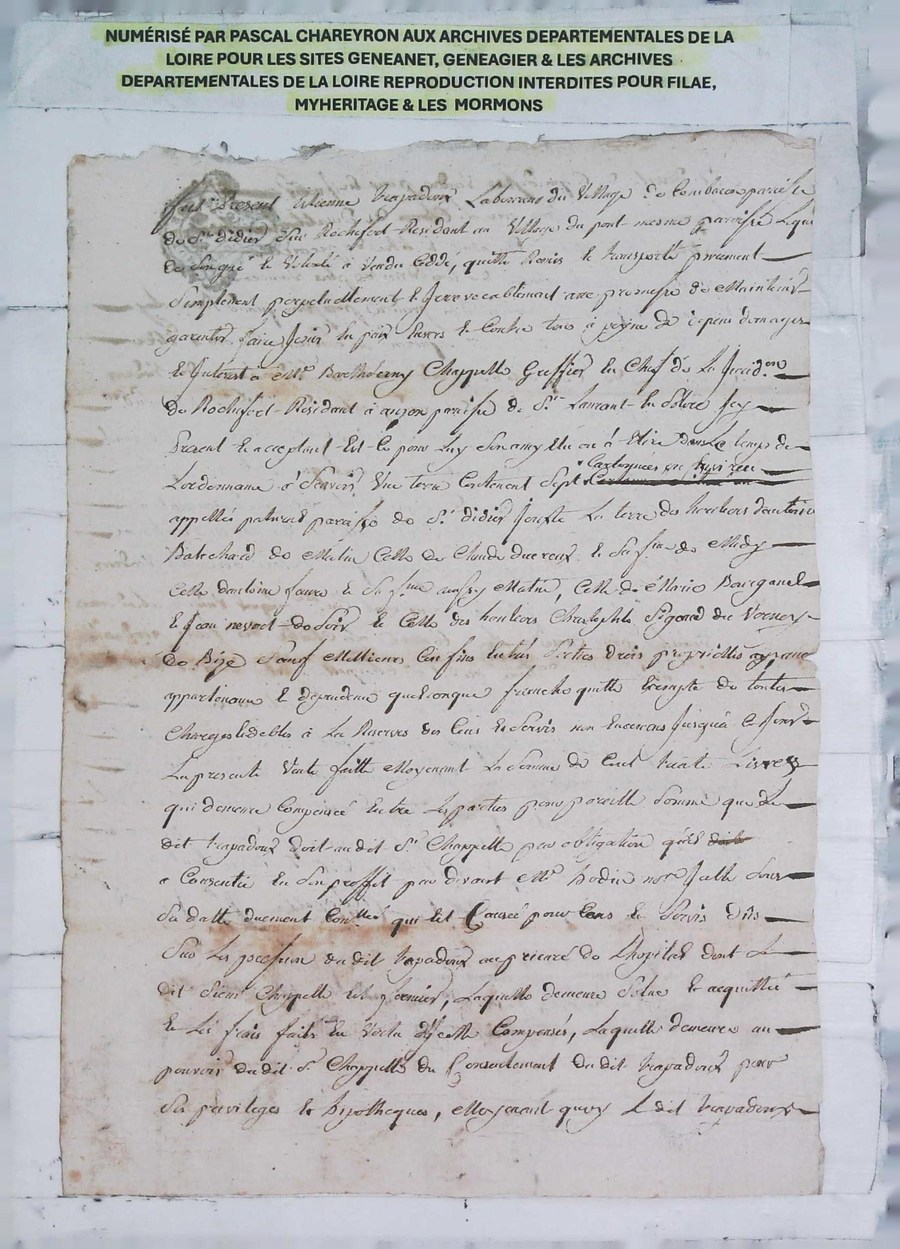 NUMÉRISÉ PAR PASCAL CHAREYRON AUX ARCHIVES DEPARTEMENTALES DE LA
LOIRE POUR LES SITES GENEANET, GENEAGIER & LES ARCHIVES
DEPARTEMENTALES DE LA LOIRE REPRODUCTION INTERDITES POUR FILAE,
MYHERITAGE & LES MORMONS
fut Present trapadoux Laboureur du Village de
de St. didier Sur Rochefort Resident au Village du pont mesme parroisse
de Son gré & Volonté à Vendu Cédé, quitté Remis & transporté purement
Simplement perpetuellement & Jrrevocablement avec promesse de Maintenir
garentir faire Jouir en paix Envers & Contre tous à peyne de depens domages
& Jnterest à Mr. Barthelemy Chappelle Greffier en Chef de La Juridon
de Rochefort Resident à parroisse de St. Laurant en Solore Jcy
Present & acceptant Est Ce pour Luy Son amy Elu ou à Elire dans Le temps de
Lordonnance à Scavoir Une terre Contenant Sept Cartonnées ou Environ
appellée parroisse de St. didier Jouxte La terre des heritiers
de Matin Celle de Claude & de Midy
Celle dantoine faure & aussy Matin, Celle de Marie
& Jean de Soir & Celle des heritiers Christophle du Vernay
de Bize Sauf Meilleurs Confins Entrées Sorties droits proprietés
appartenance & dependence quelconque franche quitte Exempte de toutes
Charges & debtes à La Reserve des Cens & Servis non Encourus Jusqua Ce Jour
La presente Vente faitte Moyenant La Somme de Cent trente Livres
qui demeure Compencée Entre Les parties pour pareille Somme que Le
dit trapadoux doit au dit Sr. Chappelle par obligation qu'il
a Consentie En Son proffit par devant Me. nore Jcelle Sous
Sa datte duement Conllée qui Est Causée pour Cens & Servis dûs
Sur Les possession du dit trapadoux au prieuré de Lhopital dont Le
dit Sieur Chappelle Est fermier, Laquelle demeure Solue & acquittée
& Les frais faits En Vertu dycelle Compensés, Laquelle demeure au
pouvoir du dit Sr Chappelle du Consentement du dit trapadoux pour
Ses privileges & hypotheques, Moyenant quoy Le dit trapadoux